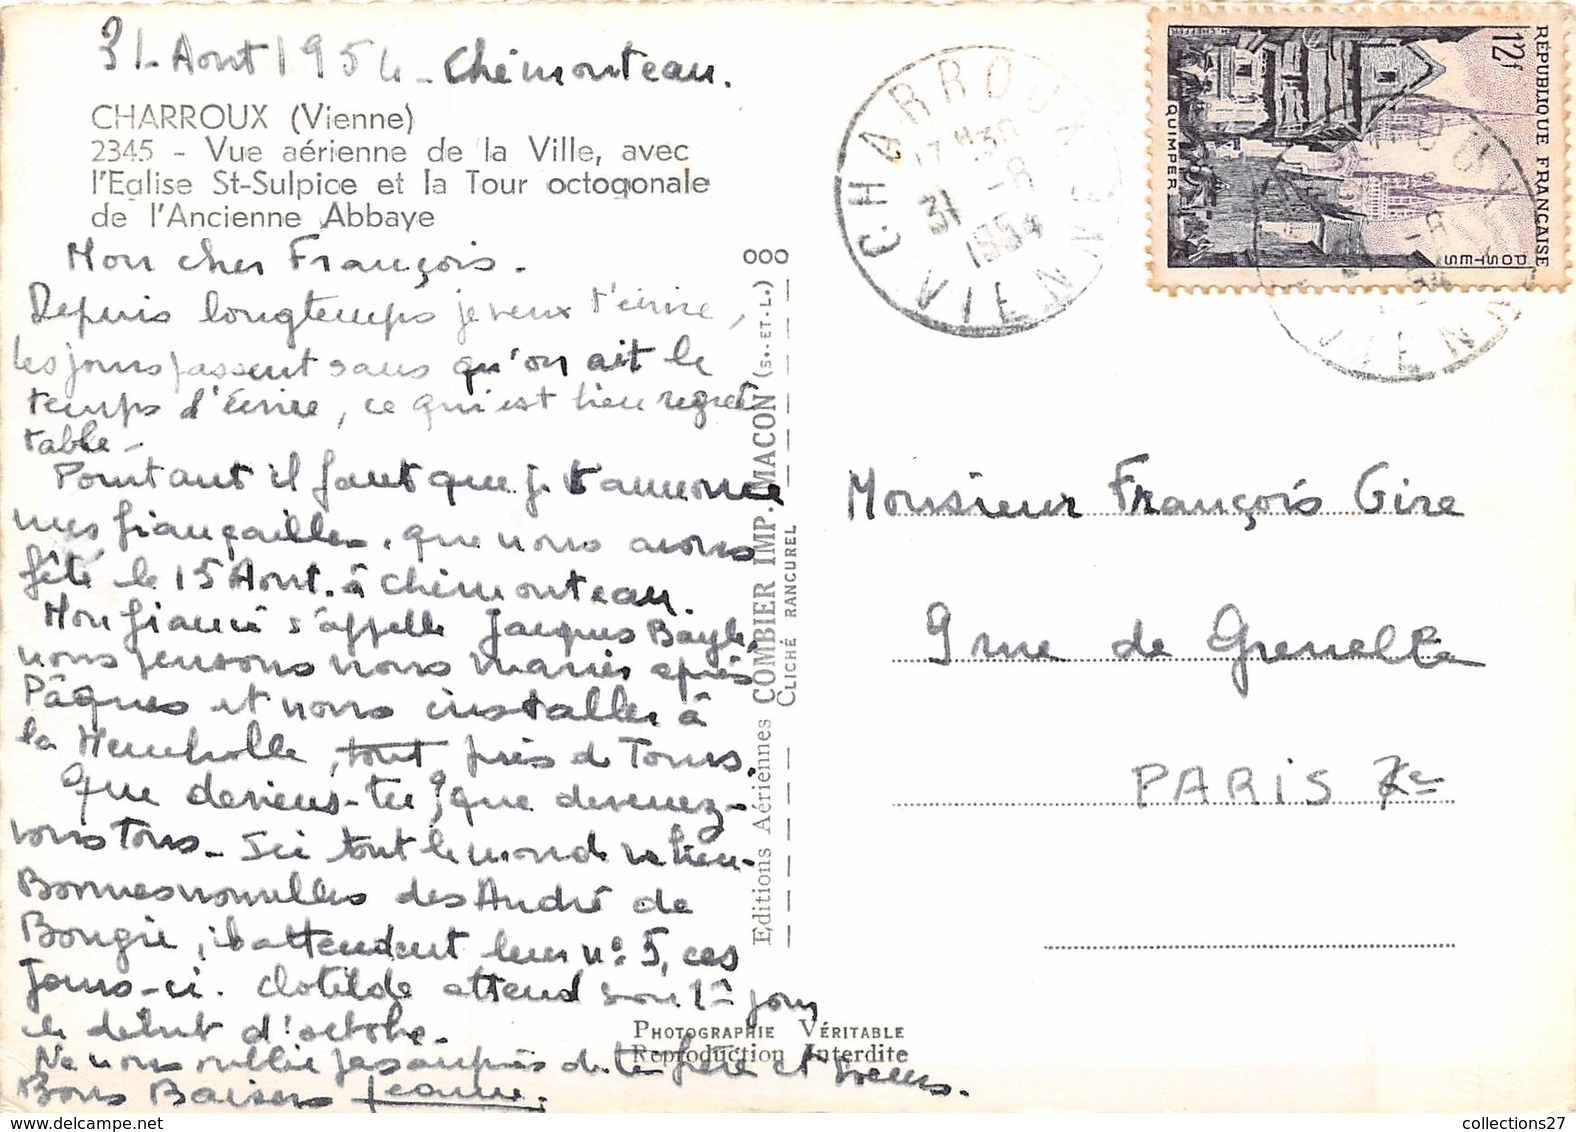 31 Aout 1954 - Chémonteau.
CHARROUX (Vienne)
2345 - Vue aérienne de la Ville, avec
l'Eglise St-Sulpice et la Tour octogonale
de l'Ancienne Abbaye
Mon cher François.
Depuis longtemps je veux t'écrire,
les jours passent sans qu'on ait le
temps d'écrire, ce qui est bien regret
table -
Pourtant il faut que je t'annonce
mes fiançailles, que nous avons
fêté le 15 Aout. à Chémonteau.
Mon fiancé s'appelle Jacques Bayle,
nous pensons nous marier après
Pâques et nous installer à
la, tout près de Tours.
Que deviens-tu? que devenez-
vous tous - Ici tout le monde va bien -
Bonnes nouvelles des André de
Bougie, ils attendent leur n° 5, ces
jours-ci. Clotilde attend son 1er pour
le début d'octobre.
Ne nous oublie pas auprès de ton frère et soeurs.
Bons Baisers Jeanne.
OOO
Editions Aériennes COMBIER IMP. MACON (S.-ET-L.)
CLICHÉ RANCUREL
PHOTOGRAPHIE VÉRITABLE
Reproduction Interdite
CHARROUX
17 H30
31 -8
1954
VIENNE
RÉPUBLIQUE FRANÇAISE
12f
POSTES
QUIMPER
Monsieur François Gire
9 rue de Grenelle
PARIS 7e
collections27